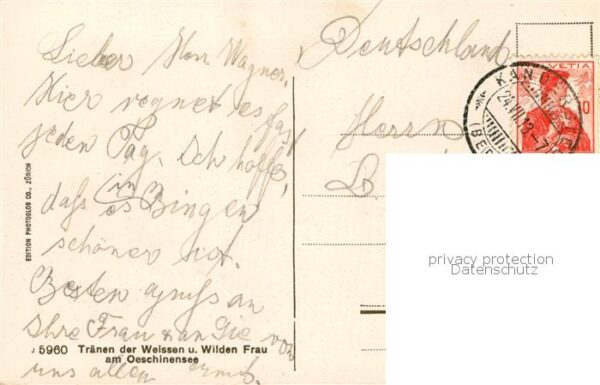 Lieber Herr Wagner,
Hier regnet es fast
jeden Tag. Ich hoffe,
daß es in Bingen
schöner ist.
Besten Gruß an
Ihre Frau & an Sie von
uns allen
Deutschland
Herrn
HELVETIA
10
24.VII.13
EDITION PHOTOGLOB CO., ZÜRICH
J 5960 Tränen der Weissen u. Wilden Frau
am Oeschinensee
privacy protection
Datenschutz